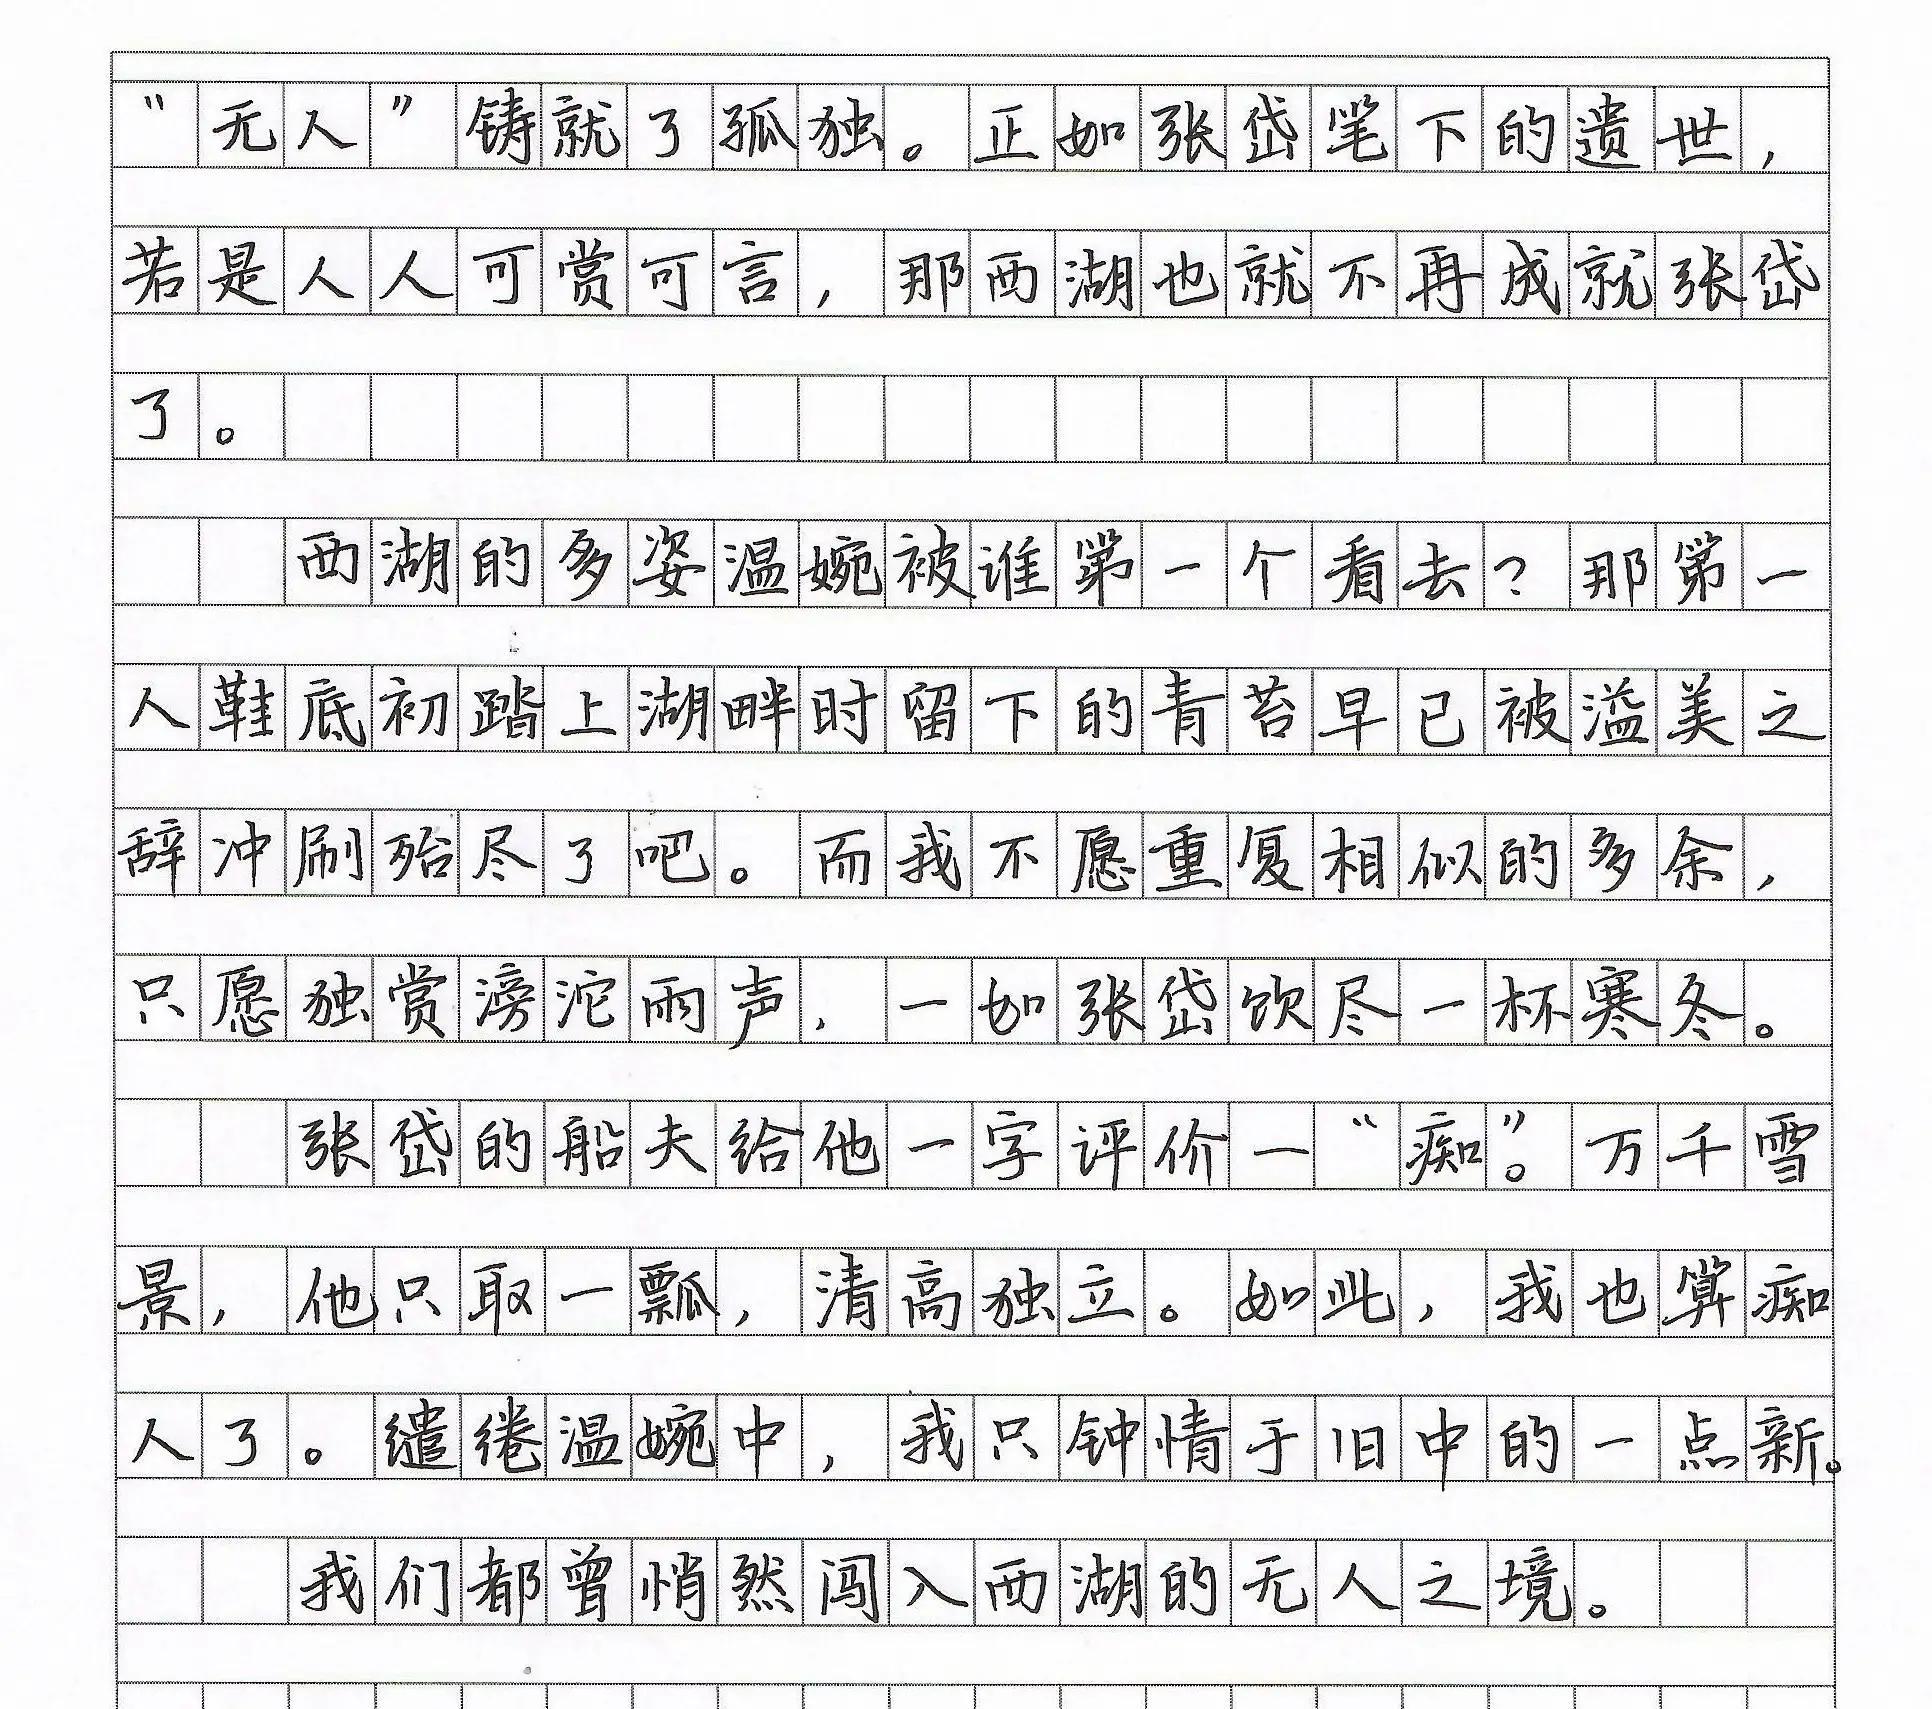 “无人”铸就了孤独。正如张岱笔下的遗世，
若是人人可赏可言，那西湖也就不再成就张岱
了。
西湖的多姿温婉被谁第一个看去？那第一
人鞋底初踏上湖畔时留下的青苔早已被溢美之
辞冲刷殆尽了吧。而我不愿重复相似的多余，
只愿独赏滂沱雨声，一如张岱饮尽一杯寒冬。
张岱的船夫给他一字评价—“痴”。万千雪
景，他只取一瓢，清高独立。如此，我也算痴
人了。缱绻温婉中，我只钟情于旧中的一点新。
我们都曾悄然闯入西湖的无人之境。